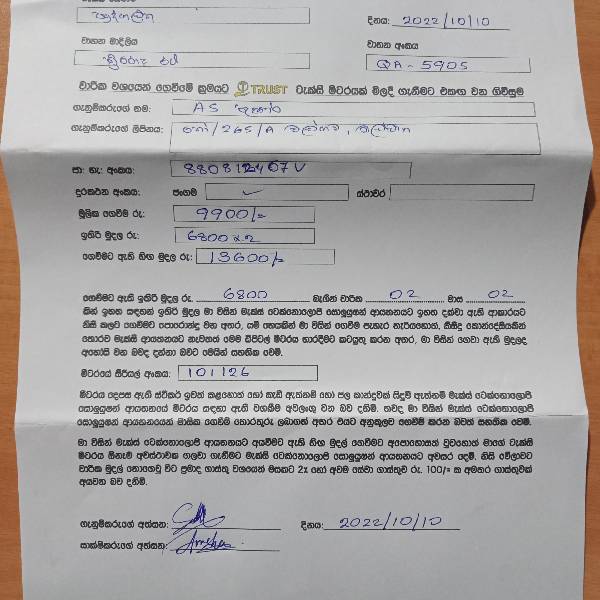 දිනය: 2022/10/10
වාහන මාදිලිය
වාහන අංකය
QA-5905
වාරික වශයෙන් ගෙවීමේ ක්‍රමයට TRUST ටැක්සි මීටරයක් මිලදී ගැනීමට එකඟ වන ගිවිසුම
ගැනුම්කරුගේ නම: AS
ගැනුම්කරුගේ ලිපිනය: 265/A
ජා: හැ: අංකය: 880812467V
දුරකථන අංකය: ජංගම ස්ථාවර
මූලික ගෙවීම රු: 9900/=
ඉතිරි මුදල රු: 6800x2
ගෙවීමට ඇති හිඟ මුදල රු: 13600/=
ගෙවීමට ඇති ඉතිරි මුදල රු. 6800 බැගින් වාරික 02 මාස 02
කින් ඉහත සඳහන් ඉතිරි මුදල මා විසින් මැක්ස් ටෙක්නොලොජි සොලූෂන් ආයතනයට ඉහත දක්වා ඇති ආකාරයට
නිසි කලට ගෙවීමට පොරොන්දු වන අතර, යම් හෙයකින් මා විසින් ගෙවීම් පැහැර හැරියහොත්, කිසිදු කොන්දේසියකින්
තොරව මැක්ස් ආයතනයට නැවතත් මෙම ඩිජිටල් මීටරය භාරදීමට කටයුතු කරන අතර, මා විසින් ගෙවා ඇති මුදලද
අහෝසි වන බවද දන්නා බවට මෙයින් සහතික වෙමි.
මීටරයේ සීරියල් අංකය: 101126
මීටරය දෙපස ඇති ස්ටිකර් ඉවත් කළහොත් හෝ කැඩී ඇත්නම් හෝ ජල කාන්දුවක් සිදුවී ඇත්නම් මැක්ස් ටෙක්නොලොජි
සොලූෂන් ආයතනයේ මීටරය සඳහා ඇති වගකීම අවලංගු වන බව දනිමි. තවද මා විසින් මැක්ස් ටෙක්නොලොජි
සොලූෂන් ආයතනයෙන් මාසික ගෙවීම් තොරතුරු ලබාගත් අතර එයට අනුකූලව ගෙවීම් කරන බවත් සහතික වෙමි.
මා විසින් මැක්ස් ටෙක්නොලොජි ආයතනයට අයවීමට ඇති හිඟ මුදල් ගෙවීමට අපොහොසත් වුවහොත් මාගේ ටැක්සි
මීටරය ඕනෑම අවස්ථාවක ගලවා ගැනීමට මැක්ස් ටෙක්නොලොජි සොලූෂන් ආයතනයට අවසර දෙමි. නිසි වේලාවට
වාරික මුදල් නොගෙවූ විට ප්‍රමාද ගාස්තු වශයෙන් මසකට 2x හෝ අවම සේවා ගාස්තුව රු. 100/= ක අමතර ගාස්තුවක්
අයවන බව දනිමි.
ගැනුම්කරුගේ අත්සන: දිනය: 2022/10/10
සාක්ෂිකරුගේ අත්සන: